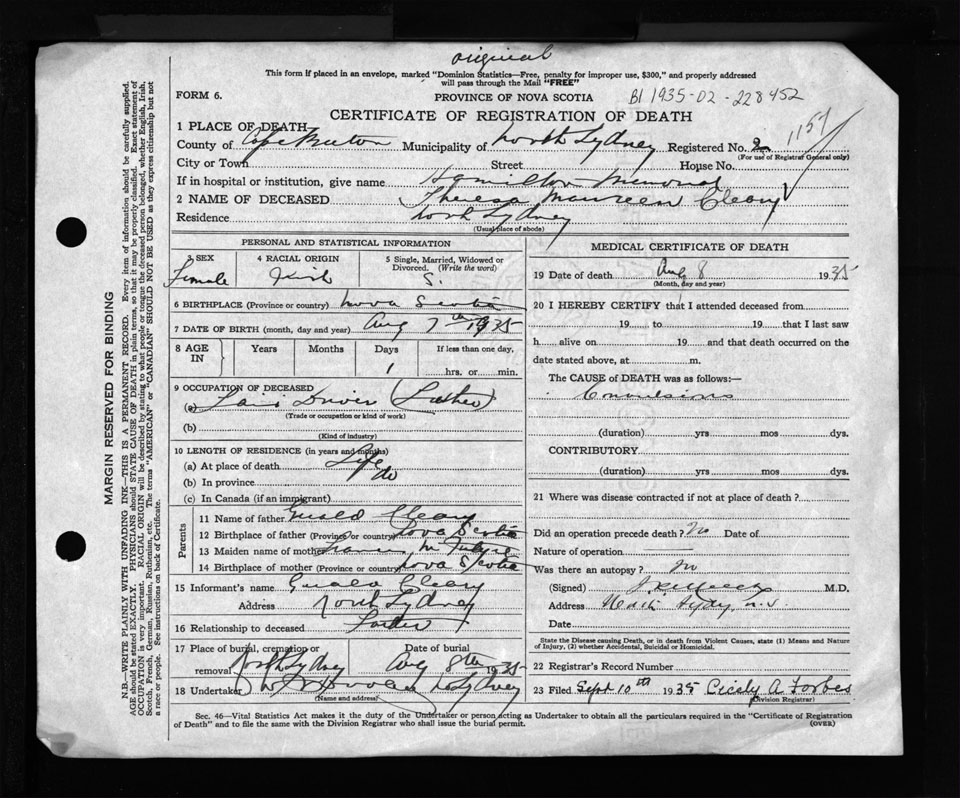 original
This form if placed in an envelope, marked "Dominion Statistics—Free, penalty for improper use, $300," and properly addressed
will pass through the Mail "FREE"
FORM 6.
PROVINCE OF NOVA SCOTIA
B1 1935-02-228452
CERTIFICATE OF REGISTRATION OF DEATH
1157
1 PLACE OF DEATH
County of Cape Breton Municipality of North Sydney Registered No. 2
(For use of Registrar General only)
City or Town Street House No.
If in hospital or institution, give name Hamilton Memorial
2 NAME OF DECEASED Theresa Maureen Cleary
Residence North Sydney
(Usual place of abode)
PERSONAL AND STATISTICAL INFORMATION
3 SEX 4 RACIAL ORIGIN 5 Single, Married, Widowed or
Divorced. (Write the word)
Female Irish S.
6 BIRTHPLACE (Province or country) Nova Scotia
7 DATE OF BIRTH (month, day and year) Aug 7th 1935
8 AGE IN Years Months Days If less than one day,
1 hrs. or min.
9 OCCUPATION OF DECEASED
(a) Driver (Father)
(Trade or occupation or kind of work)
(b)
(Kind of industry)
10 LENGTH OF RESIDENCE (in years and months)
(a) At place of death Life
(b) In province do
(c) In Canada (if an immigrant)
Parents
11 Name of father Cleary
12 Birthplace of father (Province or country) Nova Scotia
13 Maiden name of mother
14 Birthplace of mother (Province or country) Nova Scotia
15 Informant's name Cleary
Address North Sydney
16 Relationship to deceased Father
17 Place of burial, cremation or Date of burial
removal North Sydney Aug 8th 1935
18 Undertaker N. Sydney
(Name and address)
MEDICAL CERTIFICATE OF DEATH
19 Date of death Aug 8 1935
(Month, day and year)
20 I HEREBY CERTIFY that I attended deceased from
19 to 19 that I last saw
h alive on 19 and that death occurred on the
date stated above, at m.
The CAUSE of DEATH was as follows:—
Convulsions
(duration) yrs mos dys.
CONTRIBUTORY
(duration) yrs mos dys.
21 Where was disease contracted if not at place of death?
Did an operation precede death? No Date of
Nature of operation
Was there an autopsy? No
(Signed) M.D.
Address North Sydney, N.S.
Date
State the Disease causing Death, or in death from Violent Causes, state (1) Means and Nature
of Injury, (2) whether Accidental, Suicidal or Homicidal.
22 Registrar's Record Number
23 Filed Sept 10th 1935 Cicely A. Forbes
(Division Registrar)
Sec. 46—Vital Statistics Act makes it the duty of the Undertaker or person acting as Undertaker to obtain all the particulars required in the "Certificate of Registration
of Death" and to file the same with the Division Registrar who shall issue the burial permit. (OVER)
MARGIN RESERVED FOR BINDING
N.B.—WRITE PLAINLY WITH UNFADING INK—THIS IS A PERMANENT RECORD. Every item of information should be carefully supplied.
AGE should be stated EXACTLY. PHYSICIANS should STATE CAUSE OF DEATH in plain terms, so that it may be properly classified. Exact statement of
OCCUPATION is very important. RACIAL ORIGIN will be described by stating to what people or tongue the deceased person belonged, whether English, Irish,
Scotch, French, German, Russian, Ruthenian, etc. The terms "AMERICAN" or "CANADIAN" SHOULD NOT BE USED as they express citizenship but not
a race or people. See instructions on back of Certificate.